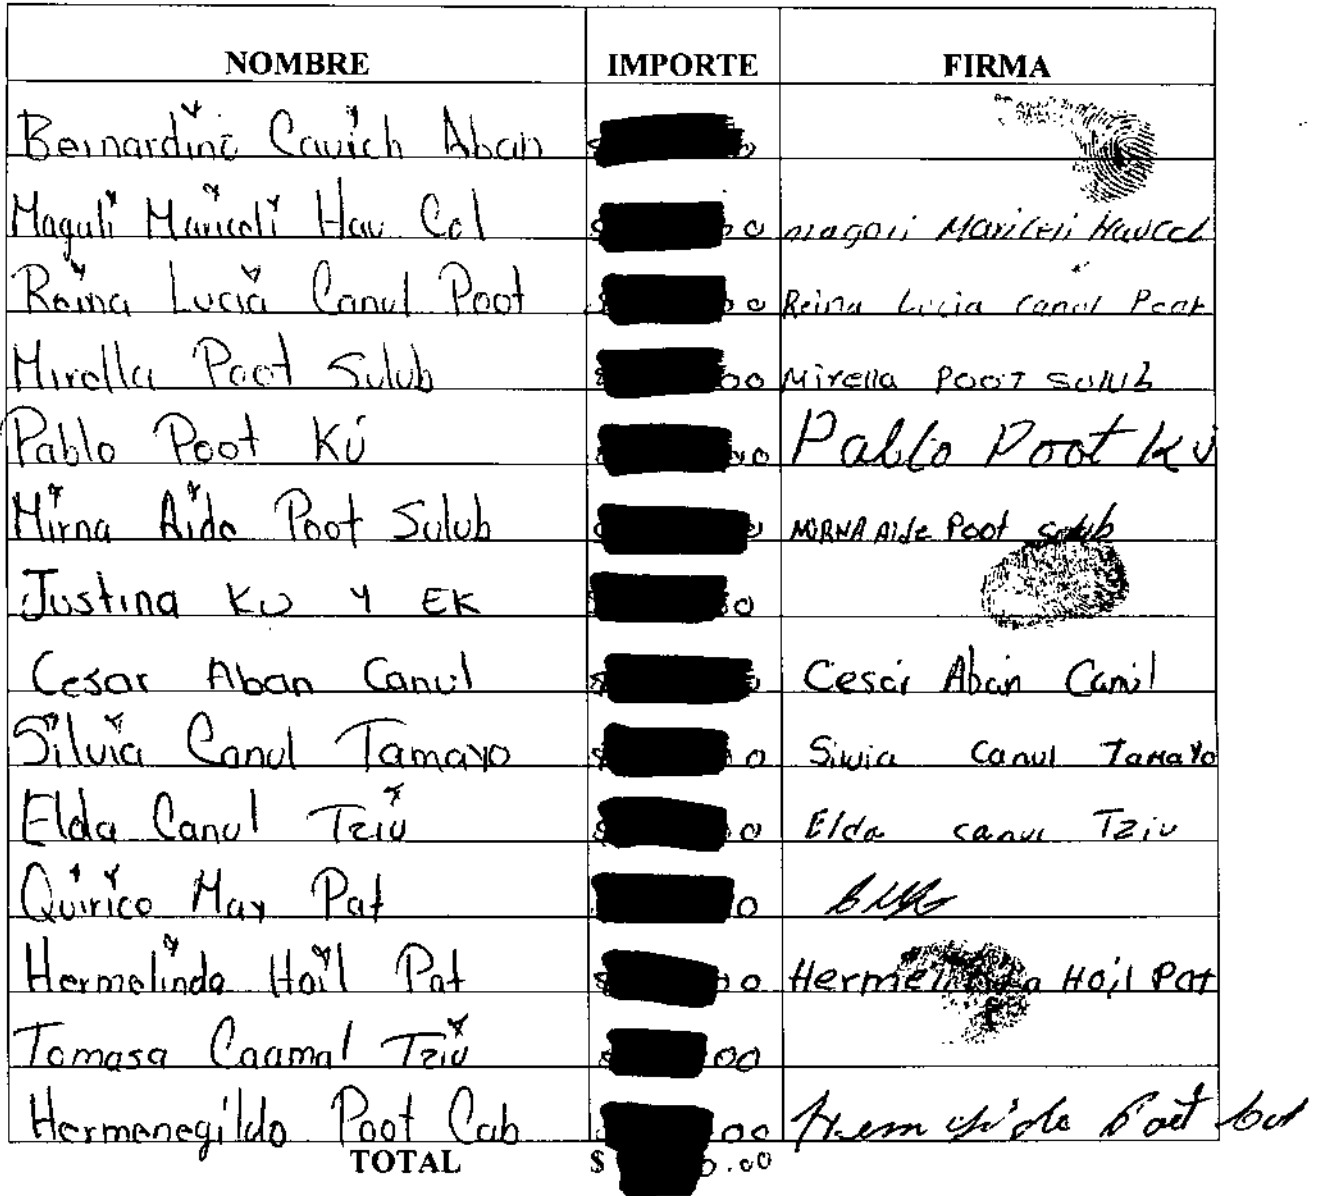 NOMBRE IMPORTE FIRMA
Bernardino Cauich Aban
Maguli Mariceli Hau Col 0 magali Mariceli Hau Col
Reina Lucia Canul Poot 0 Reina Lucia Canul Poot
Mirella Poot Sulub 00 Mirella Poot Sulub
Pablo Poot Kú 00 Pablo Poot Kú
Mirna Aide Poot Sulub MIRNA Aide Poot Sulub
Justina Ku y EK 0
Cesar Aban Canul Cesar Aban Canul
Silvia Canul Tamayo 0 Silvia Canul Tamayo
Elda Canul Tziu 0 Elda Canul Tziu
Quirico May Pat 0
Hermelinda Hoil Pat 0 Hermelinda Hoil Pat
Tomasa Caamal Tziu 00
Hermenegildo Poot Cab 00
TOTAL $ .00